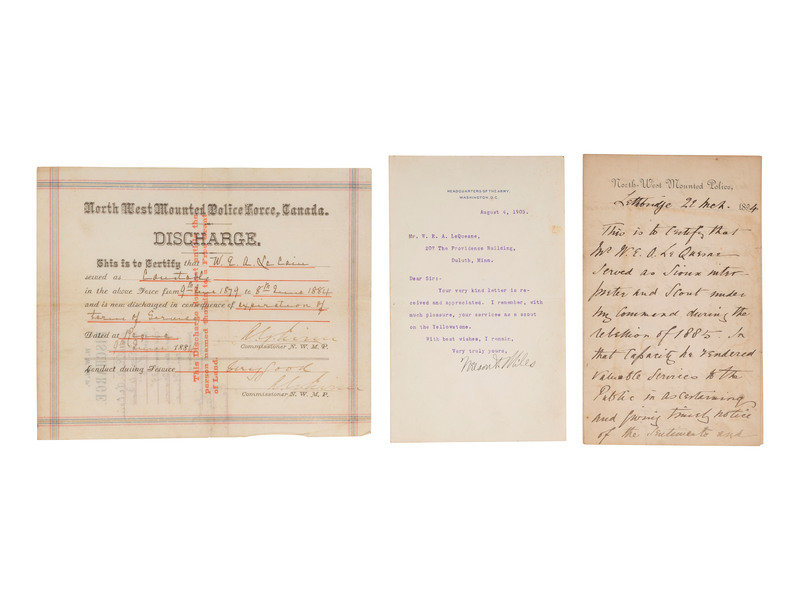 North West Mounted Police Force, Canada.
DISCHARGE.
This is to Certify that W. E. A. Le
served as Constable
in the above Force from 9th June 1879 to 8th June 1884
and is now discharged in consequence of expiration of
term of Service
Dated at Regina
June 188
Commissioner N. W. M. P.
Conduct during Service Very good
Commissioner N. W. M. P.
This Discharge
person named
of Land.
HEADQUARTERS OF THE ARMY,
WASHINGTON, D.C.
August 4, 1905.
Mr. W. E. A. LeQuesne,
207 The Providence Building,
Duluth, Minn.
Dear Sir:-
Your very kind letter is re-
ceived and appreciated. I remember, with
much pleasure, your services as a scout
on the Yellowstone.
With best wishes, I remain,
Very truly yours,
Nelson A. Miles
North-West Mounted Police,
Lethbridge 21 Mch. 1894
This is to Certify that
Mr W. E. A. Le Quesne
Served as Sioux inter
preter and Scout under
my Command during the
rebellion of 1885 In
that Capacity he rendered
valuable Services to the
Public in ascertaining
and giving timely notice
of the and